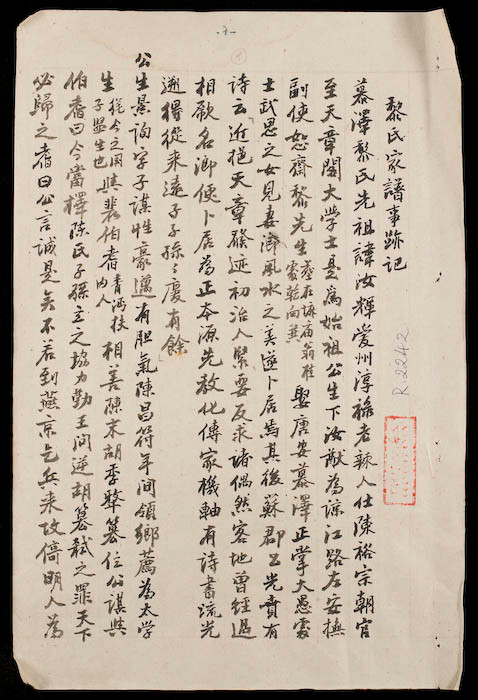 -7-
黎氏家譜事跡記
慕澤黎氏先祖諱汝輝愛州淳祿老辣人仕陳裕宗朝官
至天章閣大学士是為始祖公生下汝猷為諒江路左安撫
副使恕齋黎先生墓在麻廟翁社處乾向巽娶唐安慕澤正掌大愚處
士武思之女見妻鄉風水之美遂卜居焉其後蘇郡公光賁有
詩云近挹天章發迹初冶人緊要反求諸偶然客地曾經過
相欣名鄉便卜居為正本源先教化傳家機軸有詩書流光
遡得從來遠子子孫〻慶有餘
公生景詢字子謀性豪邁有胆氣陳昌符年間領鄉薦為太学
生従今之国子學生也與裴伯耆青沔扶內人相善陳末胡季犛篡位公謀與
伯耆曰今當擇陳氏子孫立之協力勤王問逆胡篡弒之罪天下
必歸之耆曰公言誠是矣不若到燕京乞兵來攻倚明人為
R.2242